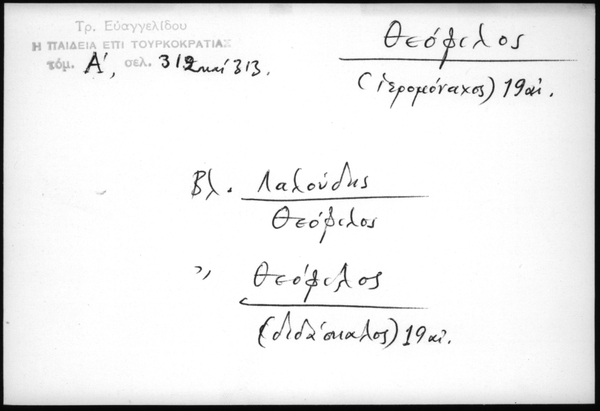 Τρ. Εὐαγγελίδου
Η ΠΑΙΔΕΙΑ ΕΠΙ ΤΟΥΡΚΟΚΡΑΤΙΑΣ
τόμ. Α', σελ. 312 καί 313.
Θεόφιλος
(ἱερομόναχος) 19 αἰ.
Βλ. Λαλούδης
Θεόφιλος
〃 Θεόφιλος
(διδάσκαλος) 19 αἰ.